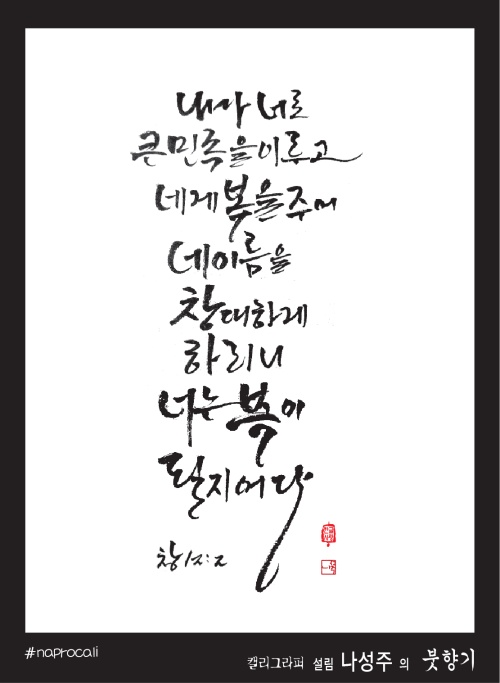 내가 너로
큰 민족을 이루고
네게 복을 주며
네 이름을
창대하게
하리니
너는 복이
될지어다
창12:2
#naprocali
캘리그라피 설림 나성주 의 붓향기